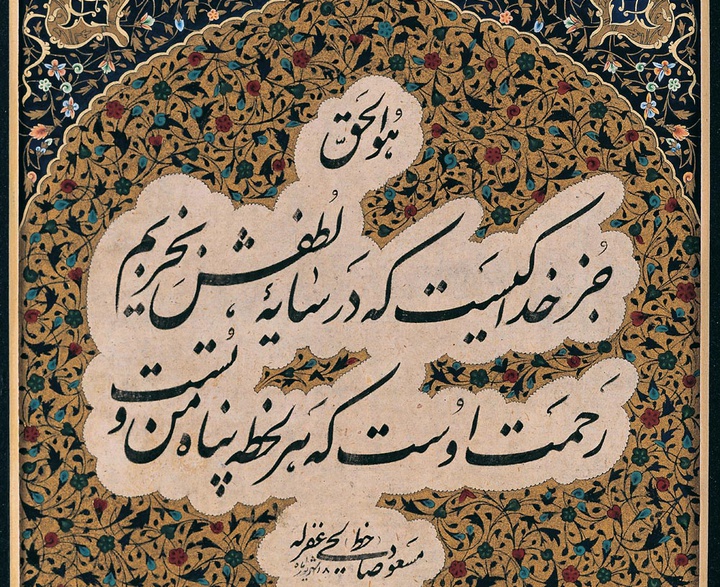 هُوالحَقّ
جُز خدا کیست که در سایۀ لُطفش بخزیم
رَحمت اوُست که هر لحظه پناه من و تُست
مسعود غفرله